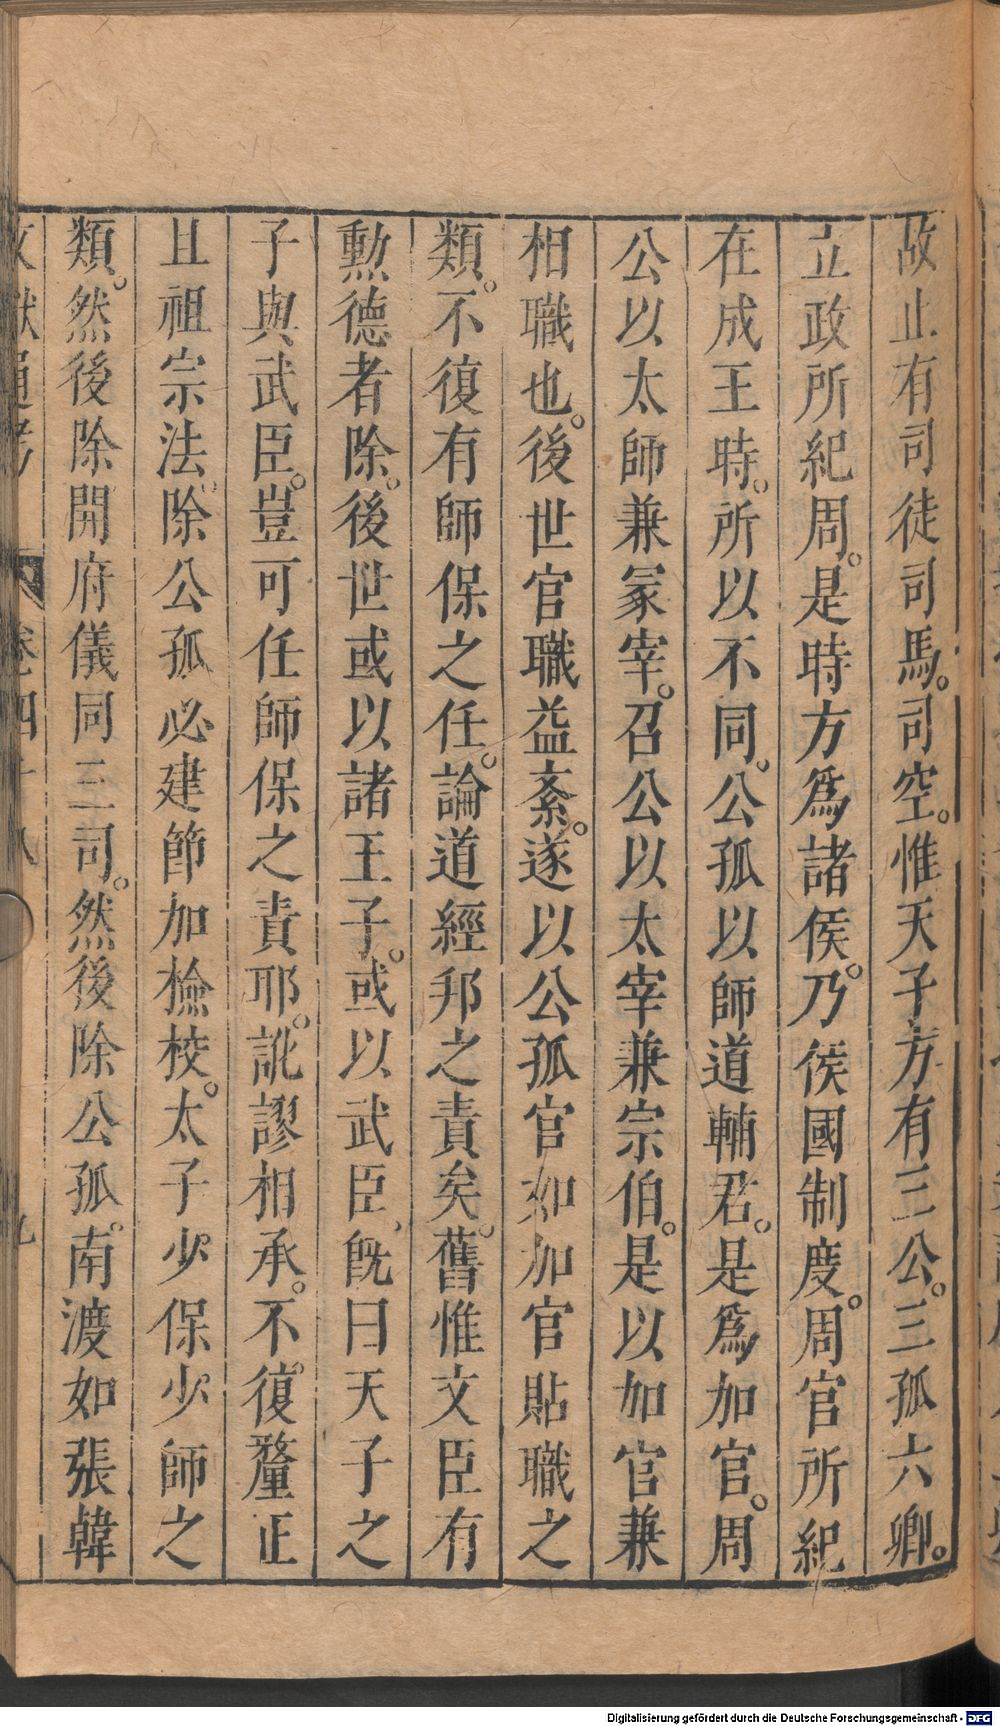 故止有司徒司馬。司空。惟天子方有三公。三孤六卿。
立政所紀周。是時方爲諸侯。乃侯國制度。周官所紀
在成王時。所以不同。公孤以師道輔君。是爲加官。周
公以太師兼冢宰。召公以太宰兼宗伯。是以加官兼
相職也。後世官職益紊。遂以公孤官如加官貼職之
類。不復有師保之任。論道經邦之責矣。舊惟文臣有
勲德者除。後世或以諸王子。或以武臣、旣曰天子之
子與武臣。豈可任師保之責耶。訛謬相承。不復釐正
且祖宗法、除公孤必建節加檢校。太子少保少師之
類。然後除開府儀同三司。然後除公孤。南渡如張韓
文獻通考 卷四十八 九
Digitalisierung gefördert durch die Deutsche Forschungsgemeinschaft - DFG